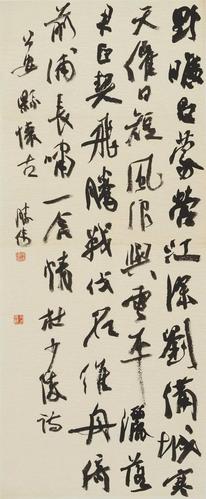 野曠呂蒙營江深劉備城寒
天催日短風浪與雲平灑落
君臣契飛騰戰伐名維舟倚
前浦長嘯一含情杜少陵詩
公安縣懷古